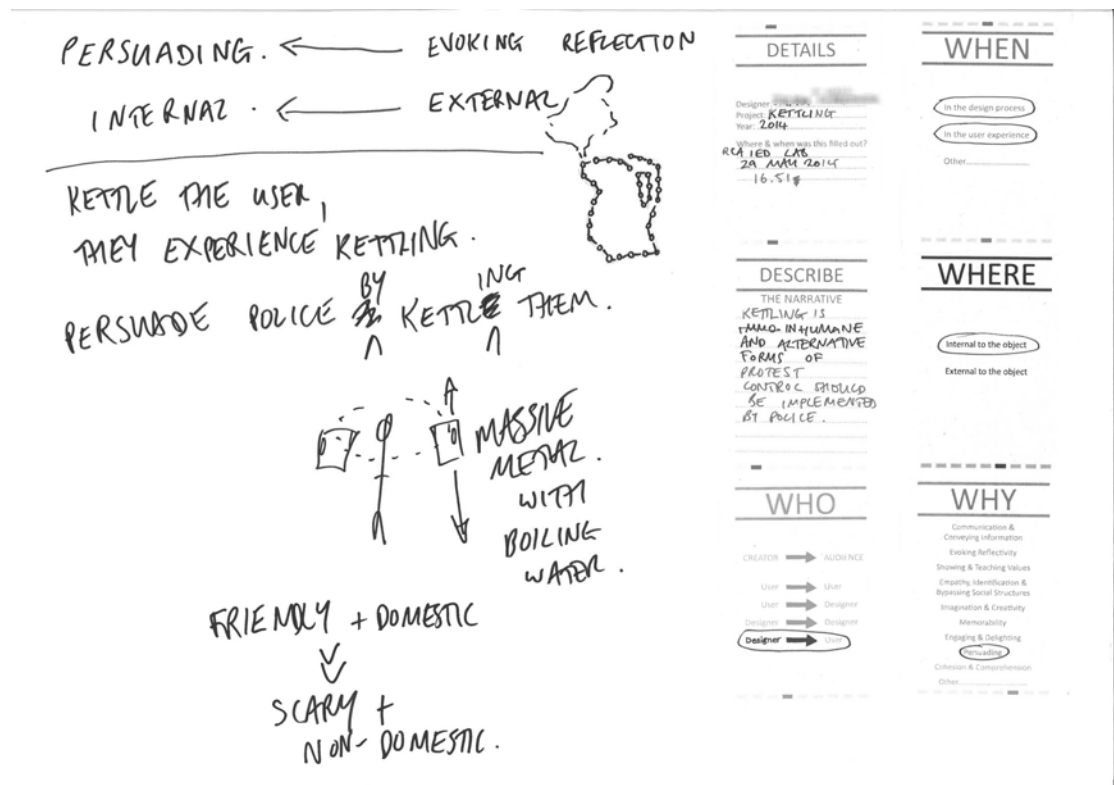 PERSUADING. ← EVOKING REFLECTION
INTERNAL . ← EXTERNAL
KETTLE THE USER,
THEY EXPERIENCE KETTLING.
BY ING
PERSUADE POLICE KETTL THEM.
MASSIVE
METAL.
WITH
BOILING
WATER.
FRIENDLY + DOMESTIC
SCARY +
NON-DOMESTIC.
DETAILS
Designer:
Project: KETTLING
Year: 2014
Where & when was this filled out?
RCA IED LAB
29 MAY 2014
16.51
DESCRIBE
THE NARRATIVE
KETTLING IS
INHUMANE
AND ALTERNATIVE
FORMS OF
PROTEST
CONTROL SHOULD
BE IMPLEMENTED
BY POLICE.
WHO
CREATOR → AUDIENCE
User → User
User → Designer
Designer → Designer
Designer → User
WHEN
In the design process
In the user experience
Other
WHERE
Internal to the object
External to the object
WHY
Communication &
Conveying Information
Evoking Reflectivity
Showing & Teaching Values
Empathy, Identification &
Bypassing Social Structures
Imagination & Creativity
Memorability
Engaging & Delighting
Persuading
Cohesion & Comprehension
Other